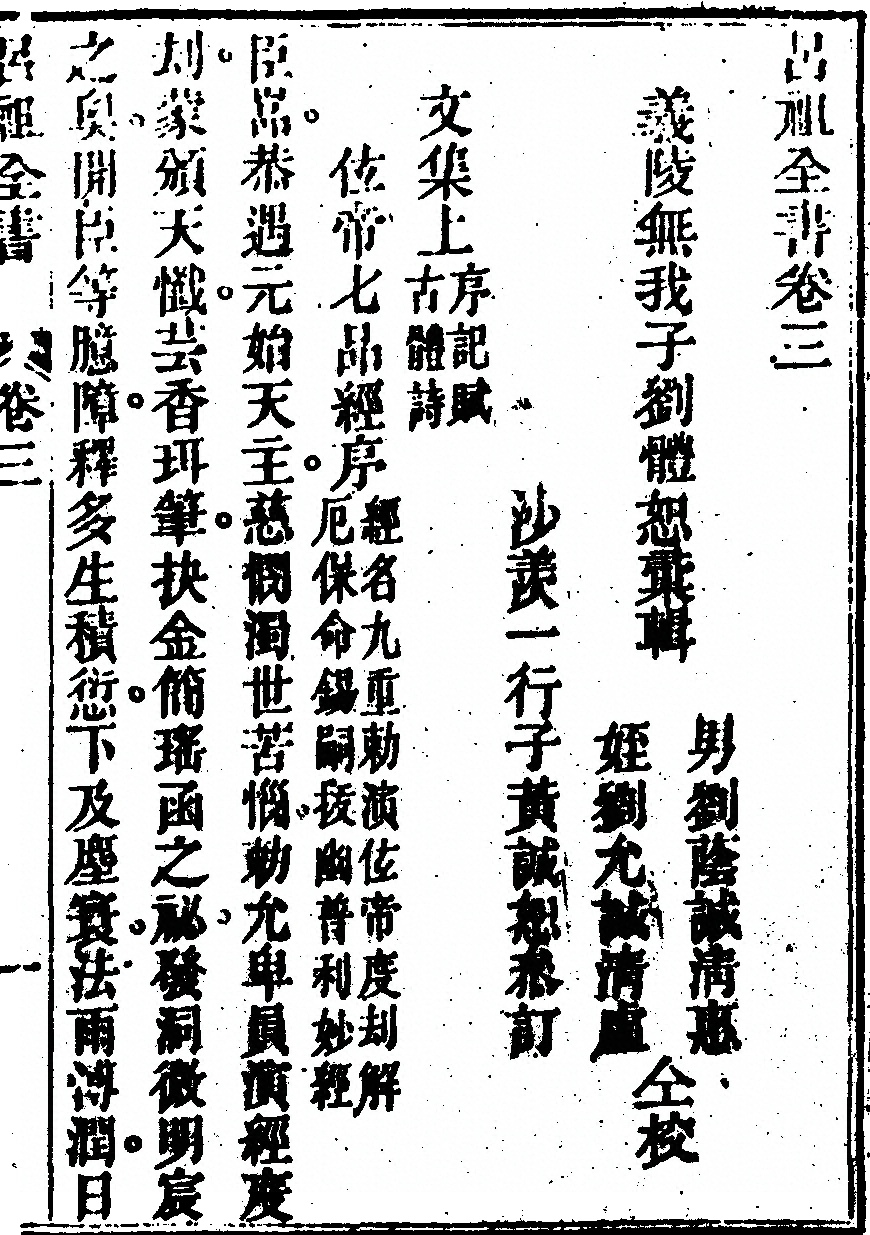 呂祖全書卷三
義陵無我子劉體恕彙輯
男劉蔭誠清惠
姪劉允誠清虛
仝校
沙羨一行子黃誠恕叅訂
文集上
序記賦
古體詩
佐帝七品經序
經名九重勅演佐帝度刦解
厄保命錫嗣拔幽普利妙經
臣嵓恭遇元始天主慈憫濁世苦惱勅允卑員演經度
刦蒙頒天懺芸香珥筆抉金簡瑤函之祕發洞微明宸
之奧開臣等臆障釋多生積愆下及塵寰法雨溥潤日
呂祖全書 卷三
一